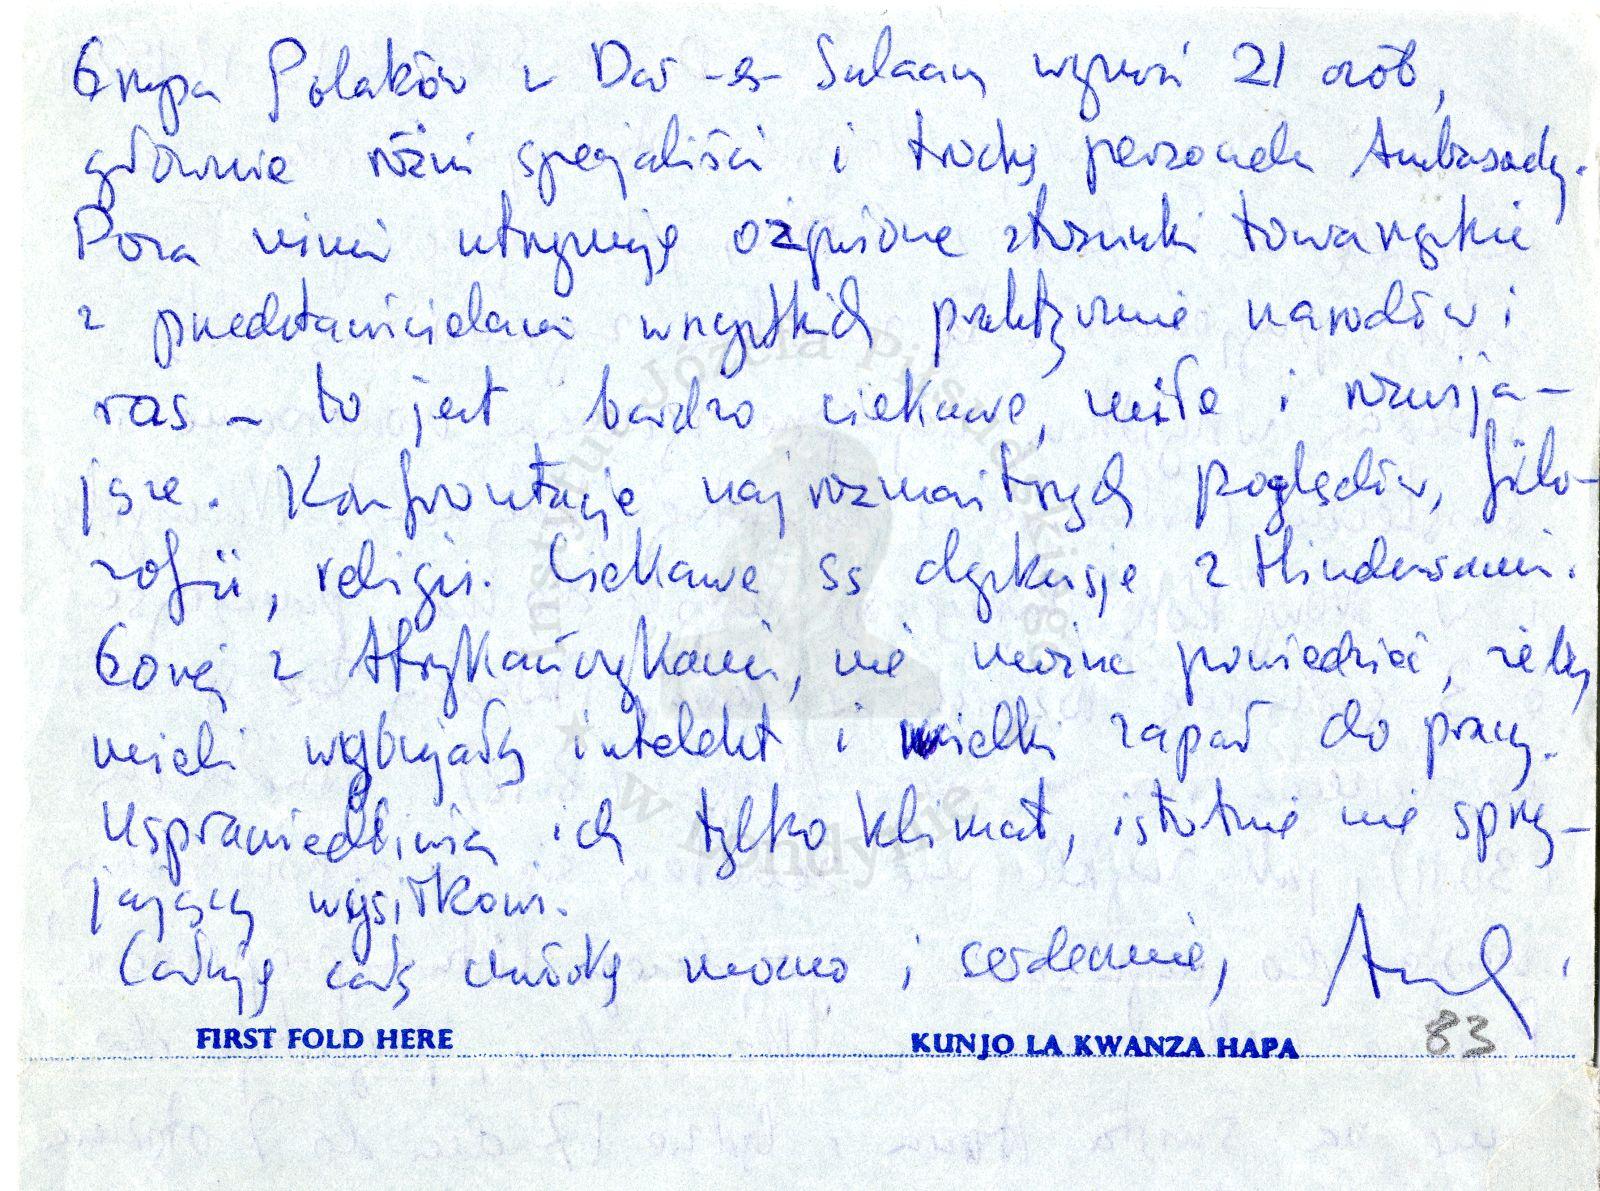 Grupa Polaków w Dar-es-Salaam wynosi 21 osób,
głównie różni specjaliści i trochę personelu Ambasady.
Poza nimi utrzymuję ożywione stosunki towarzyskie
z przedstawicielami wszystkich praktycznie narodów i
ras – to jest bardzo ciekawe, miłe i rozwija-
jące. Konfrontacje najrozmaitszych poglądów, filo-
zofii, religii. Ciekawe są dyskusje z Hindusami.
Gorzej z Afrykańczykami, nie można powiedzieć, żeby
mieli wybujały intelekt i wielki zapał do pracy.
Usprawiedliwia ich tylko klimat, istotnie nie sprzy-
jający wysiłkowi.
Całuję całą mocno i serdecznie,
FIRST FOLD HERE
KUNJO LA KWANZA HAPA
83
Instytut Józefa Piłsudskiego
w Londynie